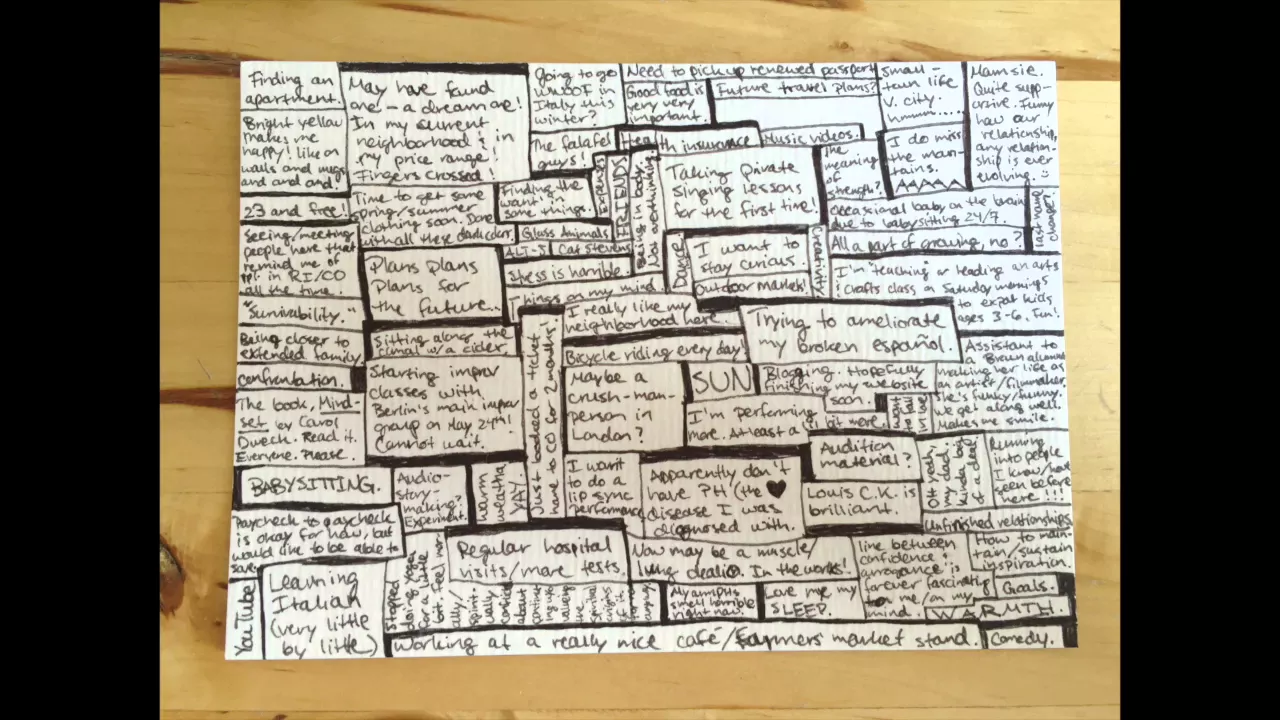 Finding an
apartment.
May have found
one - a dream one!
In my current
neighborhood & in
my price range!
Fingers crossed!
Going to go
WWOOF in
Italy this
winter?
Need to pick up renewed passport
Good food is
very very
important.
Future travel plans?
Small-
town life
v. city.
hmmm......
Mamsie.
Quite supp-
ortive. Funny
how our
relationship,
any relation-
ship is ever
evolving. :)
Bright yellow
makes me
happy! like on
walls and mugs
and and and!
The falafel
guys!
Health insurance
Music videos.
I do miss
the moun-
tains.
The
meaning
of
strength?
23 and free!
Time to get some
spring/summer
clothing soon. Done
with all these dark color.
Finding the
"want" in
some things.
FRIENDS
Being in body.
Not overthinking.
Taking private
singing lessons
for the first time!
Occassional baby on the brain
due to babysitting 24/7.
last name
change?
Glass Animals
ALT-J
Cat Stevens
All a part of growing, no?
Seeing/meeting
people here that
remind me of
ppl in RI/CO
all the time.
Plans plans
Plans for
the future...
Stress is horrible.
Things on my mind.
Dance
I want to
stay curious.
Outdoor markets!
Creativity
I'm "teaching" or leading an arts
& crafts class on Saturday mornings
to expat kids,
ages 3-6. Fun!
"Survivability."
Being closer to
extended family
Sitting along the
canal w/ a cider.
Just booked a ticket
home to CO for 2 months!
I really like my
neighborhood here..
Trying to ameliorate
my broken español.
confrontation.
Starting improv
classes with
Berlin's main improv
group on May 24th!
Cannot wait.
Bicycle riding every day!
Maybe a
crush-man-
person in
London?
SUN
Blogging. Hopefully
finishing my website
soon.
Assistant to
a Brown alumni
making her life as
an artist/filmmaker.
She's funky/funny.
We get along well.
Makes me smile.
The book, Mind-
set by Carol
Dweck. Read it.
Everyone. Please.
I'm performing
more. At least a lil
bit more.
Audition
material?
Oh yeah,
my dad...
kinda but
of a deal.
Running
into people
I know/have
seen before
here !!!
BABYSITTING.
Audio-
story-
making?
Experiment.
warm
weather
YAY!
I want
to do a
lip sync
performance
Apparently don't
have PH (the ♥
disease I was
diagnosed with.
Louis C.K. is
brilliant.
Unfinished relationships
Paycheck to paycheck
is okay for now, but
would like to be able to
save.
Stopped
doing yoga
for a little
bit. Feel nor-
Regular hospital
visits/more tests.
Now may be a muscle/
lung dealio. In the works!
line between
confidence &
arrogance is
forever fascinating
to me/on my
mind.
How to main-
tain/sustain
inspiration.
Goals.
WARMTH.
YouTube
Learning
Italian
(very little
by little)
My armpits
smell horrible
right now.
Love me my
SLEEP.
Working at a really nice café/farmers' market stand.
Comedy.